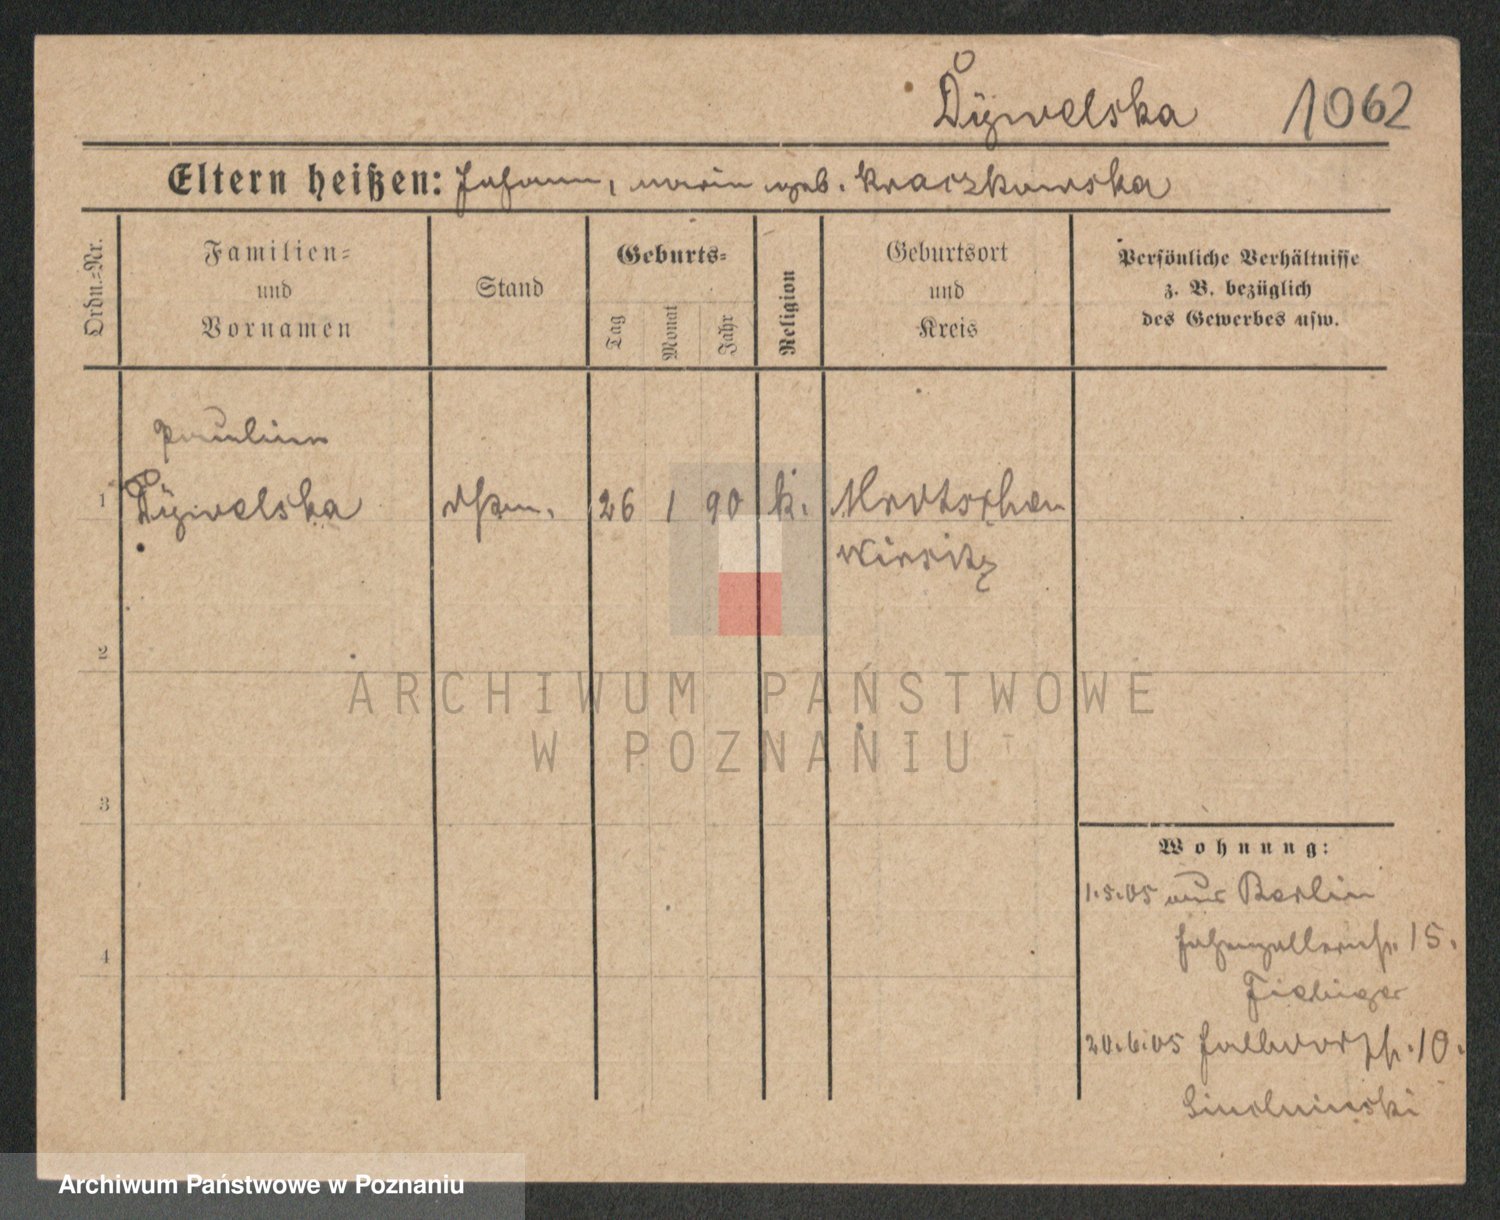 Dÿwelska 1062
Eltern heißen: Johann, Marie geb. Kraczkowska
Ordn.-Nr.
Familien-
und
Vornamen
Stand
Geburts-
Tag
Monat
Jahr
Religion
Geburtsort
und
Kreis
Persönliche Verhältnisse
z. B. bezüglich
des Gewerbes usw.
Pauline
1 26 1 90 k. Mrotschen
Wirsitz
2
ARCHIWUM PAŃSTWOWE
W POZNANIU
3
Wohnung:
1.5.05 aus Berlin
Hohenzollernstr. 15.
4
Fiebiger
20.6.05 10.
Archiwum Państwowe w Poznaniu